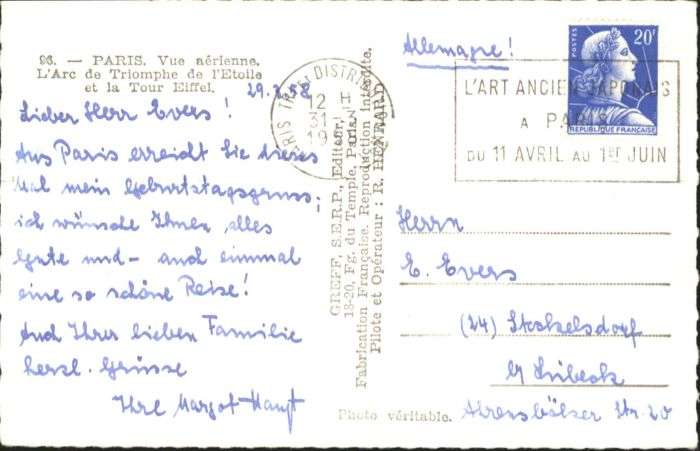 96. — PARIS. Vue aérienne.
L'Arc de Triomphe de l'Etoile
et la Tour Eiffel.
29.3.58
Lieber Herr Evers!
Aus Paris erreicht Sie dieses
Mal mein Geburtstagsgruss;
ich wünsche Ihnen alles
Gute und – auch einmal
eine so schöne Reise!
Auch Ihrer lieben Familie
herzl. Grüsse
Ihre Margot Haupt
GREFF, S.E.R.P., Editeur,
18-20, Fg. du Temple, Paris.
Fabrication Française. Reproduction interdite.
Pilote et Opérateur : R. HENRARD
Photo véritable.
PARIS DISTRI
12 H
31
19
Allemagne!
POSTES 20F
REPUBLIQUE FRANÇAISE
L'ART ANCIEN JAPONAIS
A PARIS
DU 11 AVRIL AU 1ER JUIN
Herrn
E. Evers
(24) Stockelsdorf
b/ Lübeck
Ahrensböker Str. 20